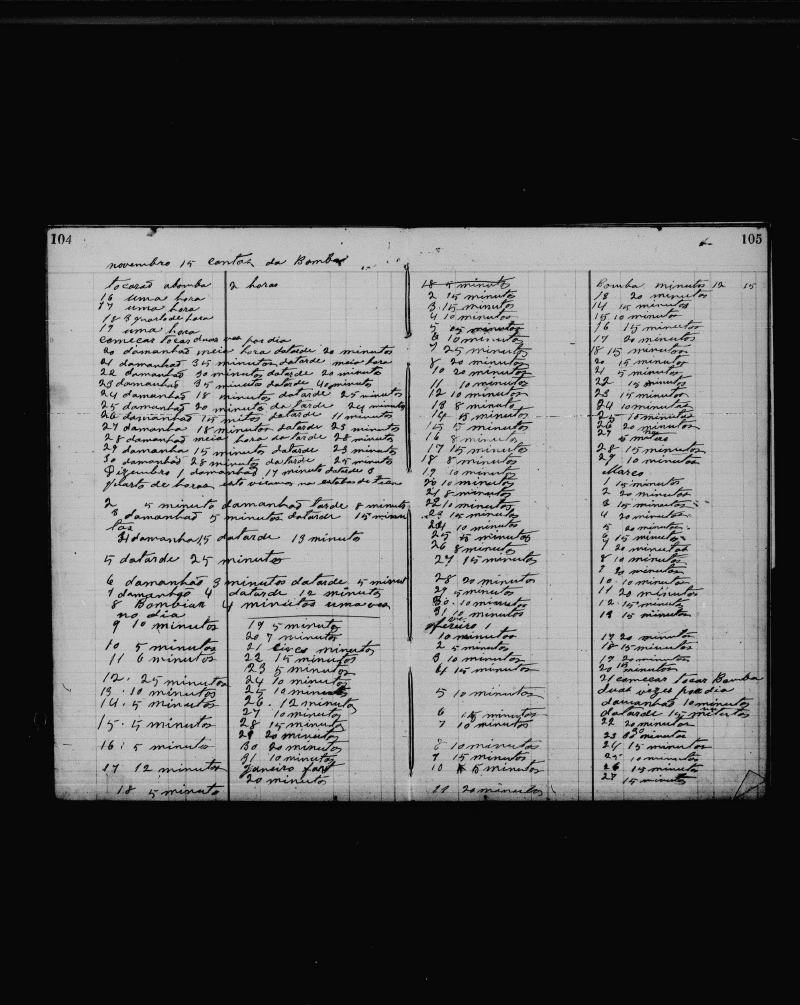 104
novembro 15 contas da Bomba
tocarão abomba 2 horas
16 uma hora
17 uma hora
18 3 quarto de hora
19 uma hora
comecas tocar duas vez por dia
20 damanhaõ meia hora datarde 20 minutos
21 damanhaõ 35 minutos datarde meia hora
22 damanhaõ 30 minutos datarde 20 minutos
23 damanhaõ 35 minutos datarde 40 minutos
24 damanhaõ 18 minutos datarde 25 minutos
25 damanhaõ 20 minutos da tarde 24 minutos
26 damanhaõ 15 minutos datarde 11 minutos
27 damanha 18 minutos datarde 23 minutos
28 damanhaõ meia hora datarde 28 minutos
29 damanha 15 minutos datarde 23 minutos
30 damanhaõ 28 minutos datarde 25 minutos
Dizembro 1 damanhaõ 17 minuto datarde 3
quarto de horas
2 5 minuto damanhaõ tarde 8 minutos
3 damanhaõ 5 minutos datarde 15 minu
tos
4 damanha 15 datarde 13 minuto
5 datarde 25 minutos
6 damanhaõ 3 minutos datarde 5 minut
7 damanhaõ 4 datarde 12 minutos
8 Bombiar 4 minutos uma vez
no dia
9 10 minutos
10 5 minutos
11 6 minutos
12. 25 minutos
13. 10 minutos
14. 5 minutos
15. 5 minutos
16. 5 minutos
17 12 minutos
18 5 minuto
19 5 minutos
20 7 minutos
21 minutos
22 15 minutos
23 5 minutos
24 10 minutos
25 10 minutos
26. 12 minutos
27 10 minutos
28 15 minutos
29 20 minutos
30 20 minutos
31 10 minutos
Janeiro
20 minutos
105
18 5 minuto
2 15 minutos
3 15 minutos
4 10 minutos
5 minutos
6 10 minutos
7 25 minutos
8 20 minutos
10 20 minutos
11 10 minutos
12 10 minutos
13 8 minuto
14 15 minutos
15 15 minutos
16 8 minuto
17 15 minutos
18 8 minutos
19 10 minutos
20 10 minutos
21 8 minutos
22 10 minutos
23 15 minutos
24 10 minutos
25 minutos
26 8 minutos
27 15 minutos
28 20 minutos
29 5 minutos
30. 10 minutos
31 10 minutos
1
10 minutos
2 5 minutos
3 10 minutos
4 15 minutos
5 10 minutos
6 15 minutos
7 10 minutos
8 10 minutos
9 15 minutos
10 15 minutos
11 20 minutos
Bomba minutos 12 15
13 20 minutos
14 15 minutos
15 10 minutos
16 15 minutos
17 20 minutos
18 15 minutos
20 15 minutos
21 5 minutos
22 15 minutos
23 15 minutos
24 10 minutos
25 10 minutos
26 20 minutos
27
28 15 minutos
29 10 minutos
Março
1 15 minutos
2 20 minutos
3 15 minutos
4 20 minutos
5 20 minutos
6 15 minutos
7 20 minutos
8 10 minutos
9 20 minutos
10. 10 minutos
11 20 minutos
12. 15 minutos
13 15 minutos
17 20 minutos
18 15 minutos
19 20 minutos
20 15 minutos
21 comecar tocar Bomba
duas vezes por dia
damanhaõ 10 minutos
datarde 15 minutos
22 20 minutos
23 minutos
24 15 minutos
25 10 minutos
26 15 minutos
27 15 minutos